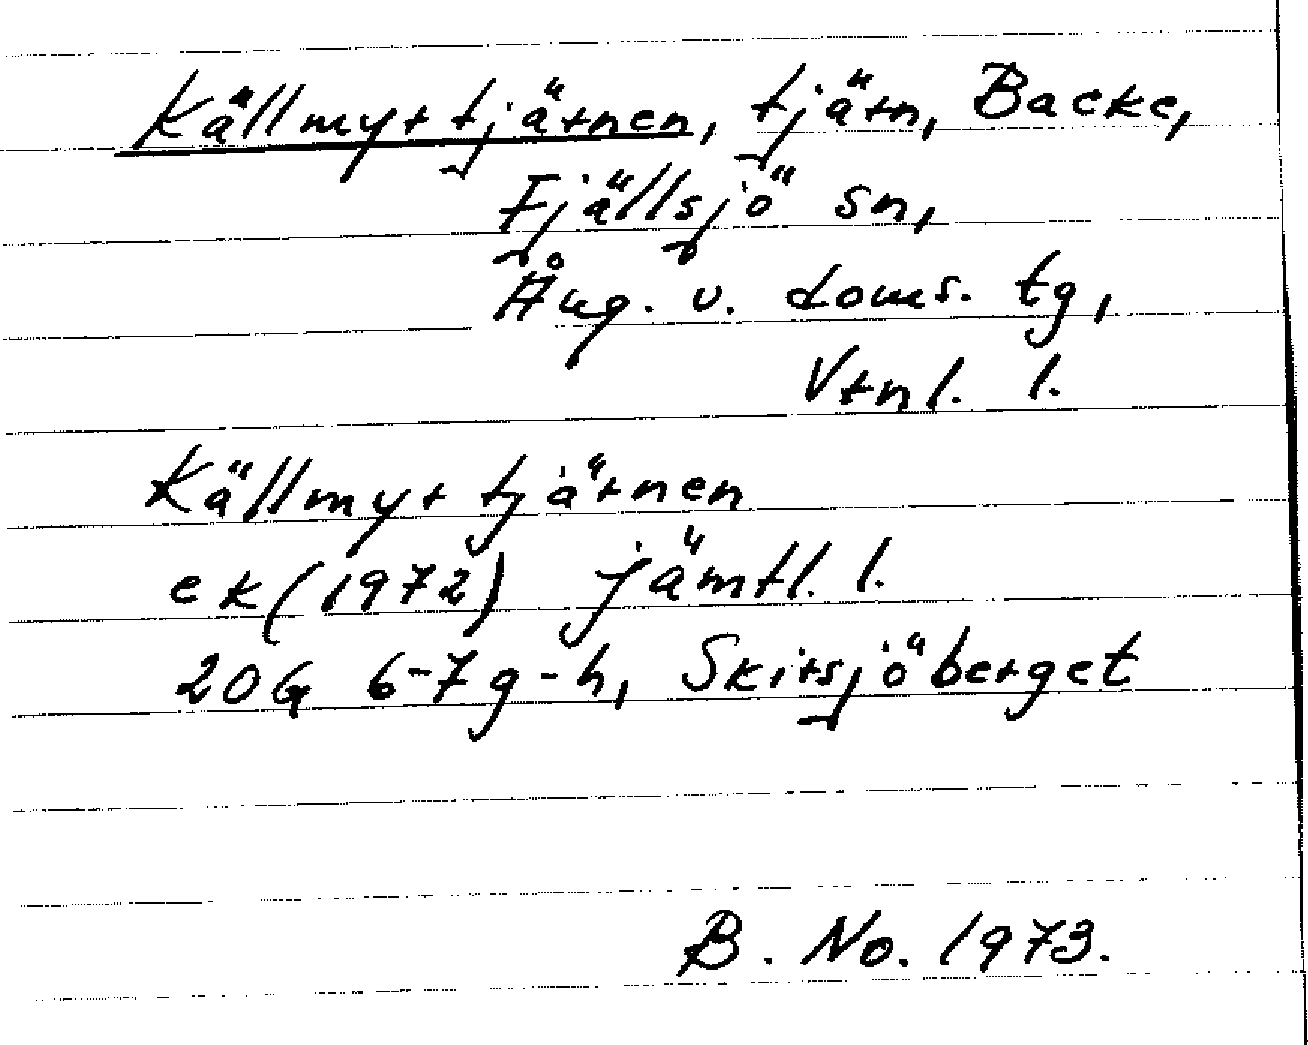 Källmyrtjärnen, tjärn, Backe,
Fjällsjö sn,
Ång. v. doms. tg,
Vtnl. l.
Källmyrtjärnen
ek (1972) jämtl. l.
20G 6-7 g-h, Skirsjöberget
B. No. 1973.